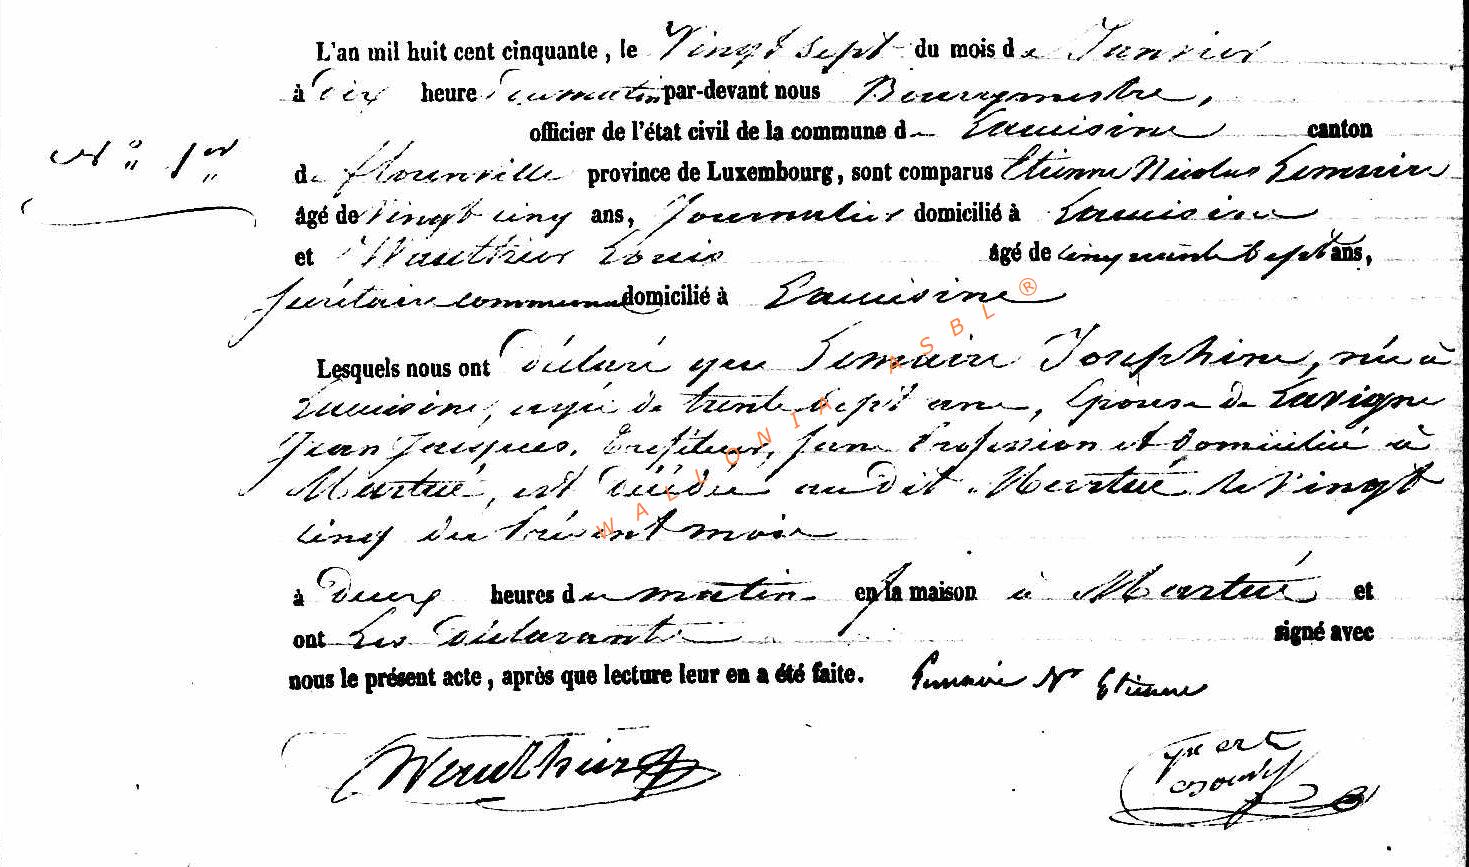 L'an mil huit cent cinquante, le Vingt sept du mois de Janvier
à Dix heure Du matin par-devant nous Bourgmestre,
officier de l'état civil de la commune de Lacuisine canton
N° 1er
de florenville province de Luxembourg, sont comparus Etienne Nicolas Lemaire
âgé de Vingt cinq ans, Journalier domicilié à Lacuisine
et Wauthier Louis âgé de cinquante sept ans,
secrétaire communal domicilié à Lacuisine
Lesquels nous ont Déclaré que Lemaire Josephine, née à
Lacuisine, agée de trente sept ans, Epouse de Lavigne
Jean Jacques, sans Profession et domicilié à
Martué, est Décédée au dit Martué le Vingt
cinq du Présent mois
à Deux heures du matin en sa maison à Martué et
ont Les Déclarants signé avec
nous le présent acte, après que lecture leur en a été faite. Lemaire N Etienne
Wauthier
WALLONIA ASBL ®